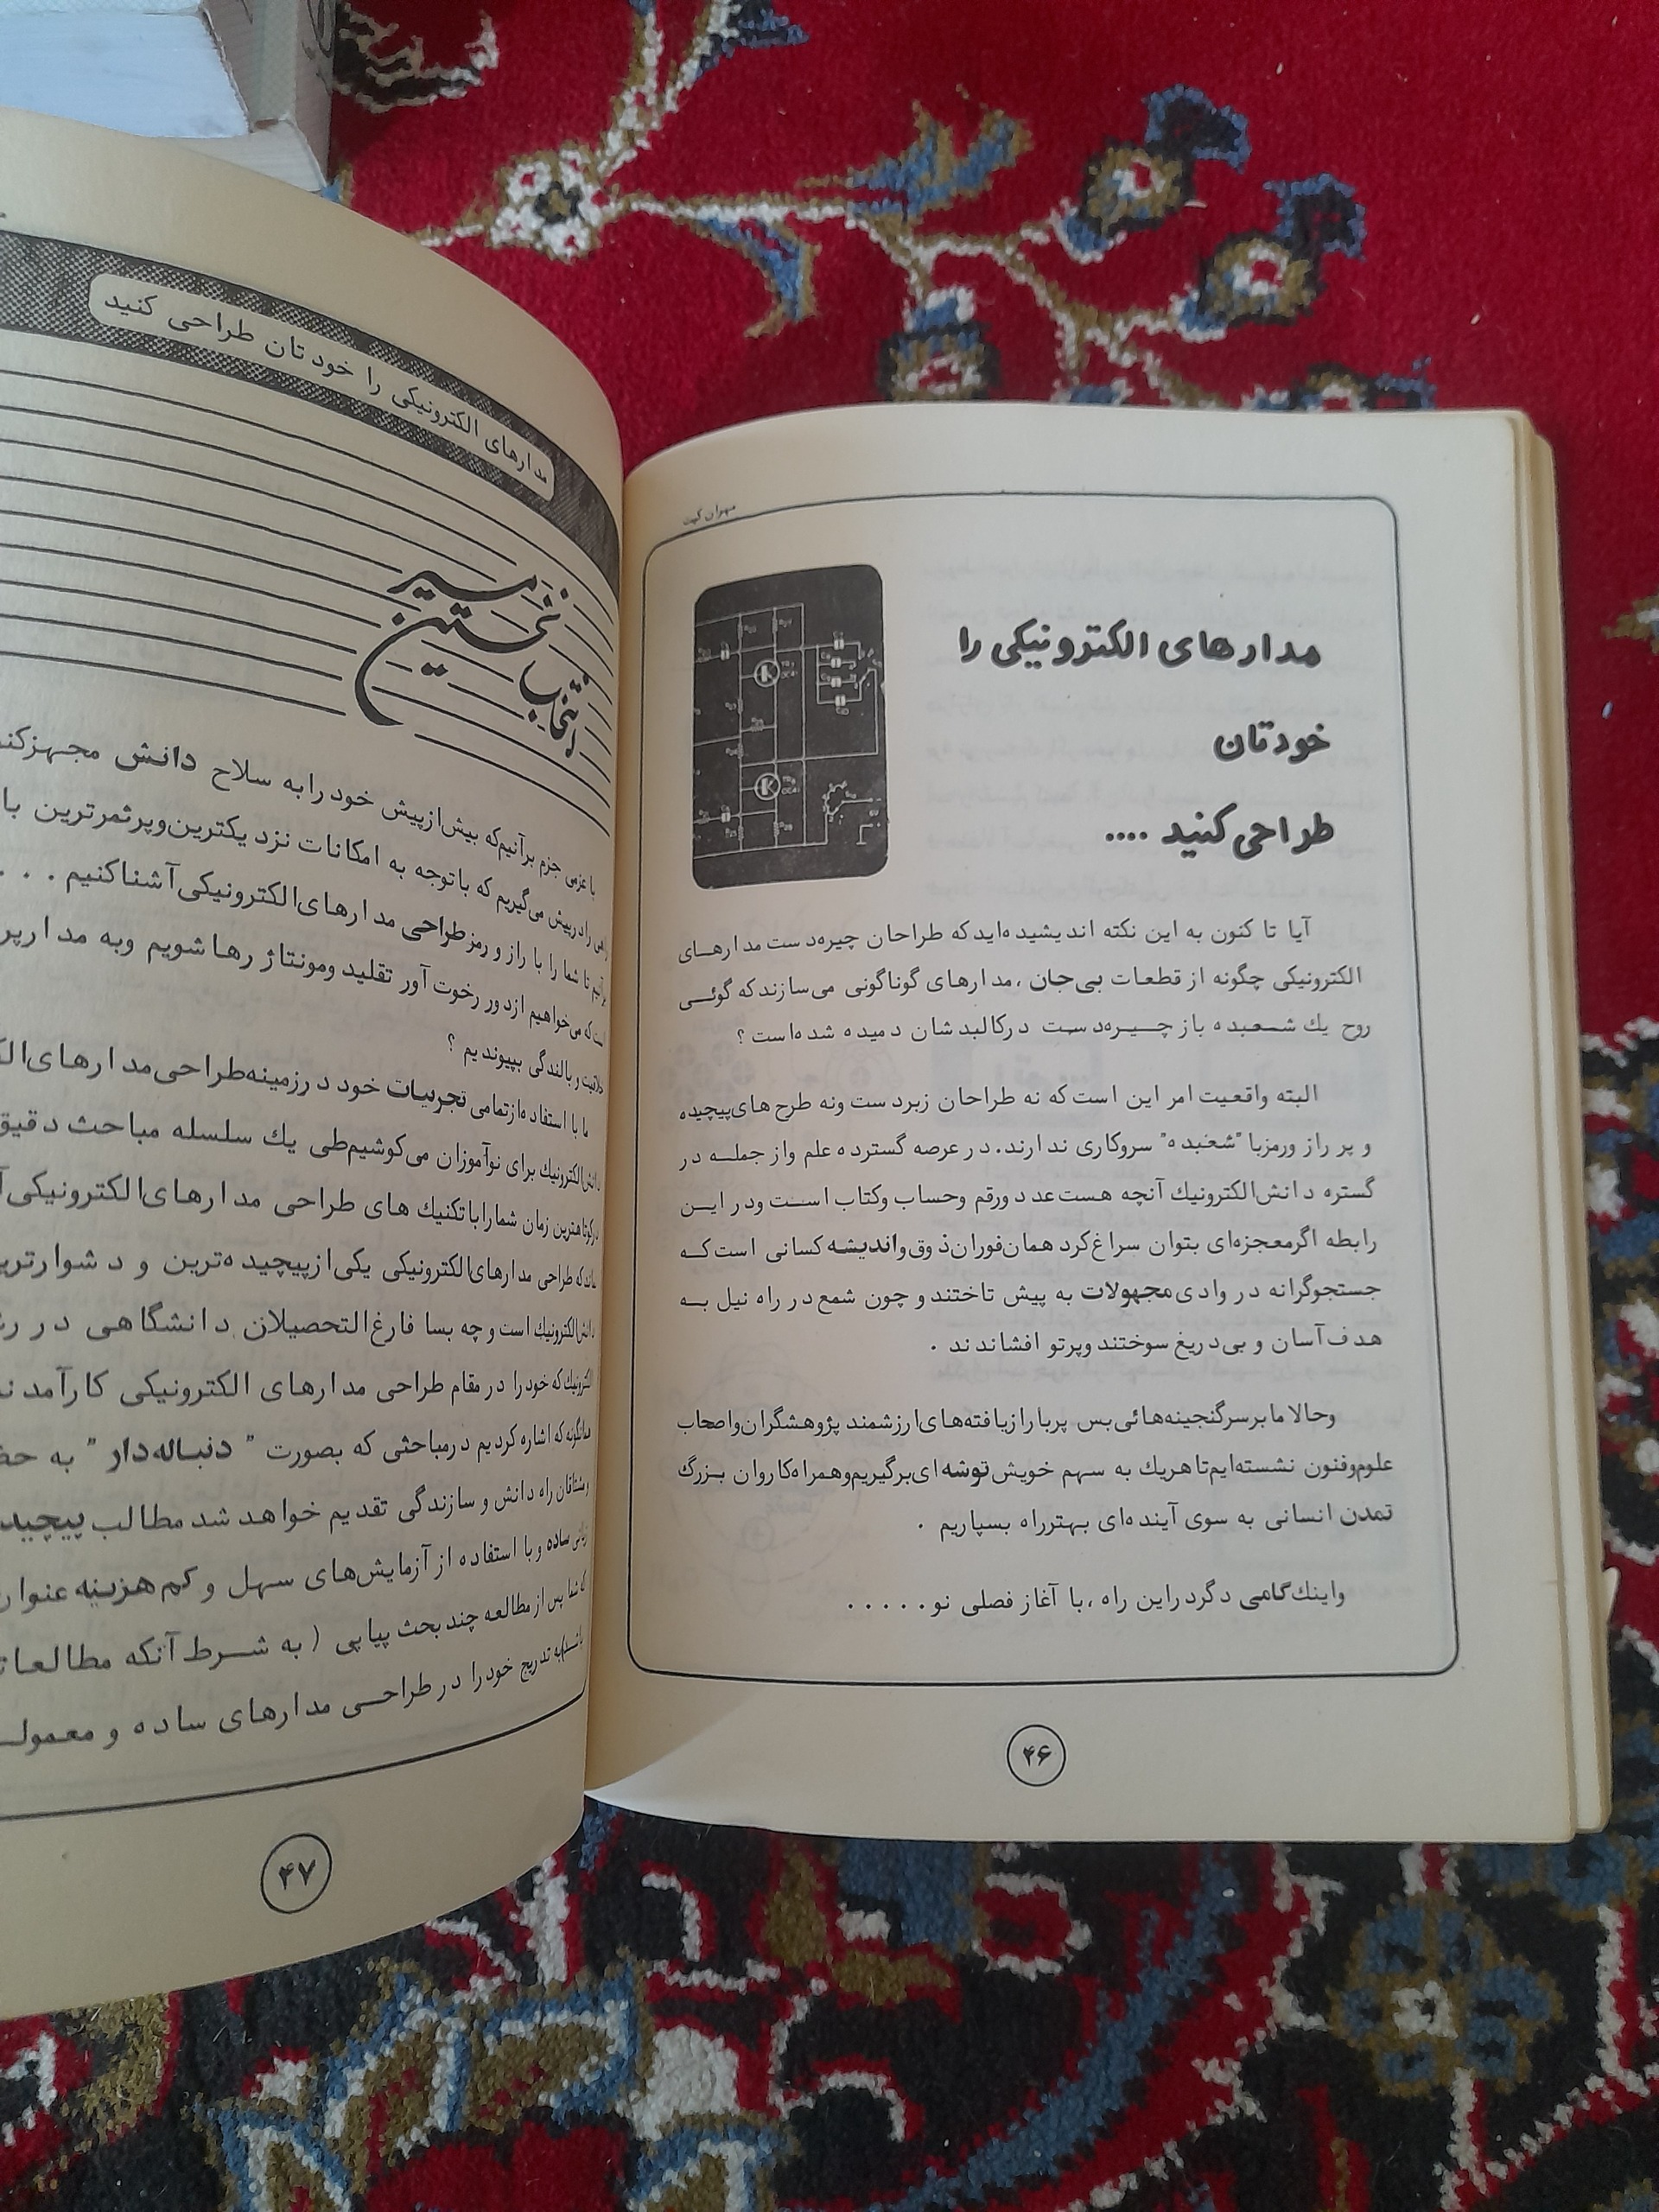 مهران کیت
مدارهای الکترونیکی را
خودتان
طراحی کنید ....
آیا تا کنون به این نکته اندیشیده‌اید که طراحان چیره‌دست مدارهای
الکترونیکی چگونه از قطعات بی‌جان ، مدارهای گوناگونی می‌سازند که گوئی
روح یك شعبده باز چیره‌دست درکالبدشان دمیده شده‌است ؟
البته واقعیت امر این است که نه طراحان زبردست ونه طرح های پیچیده
و پر راز ورمز با "شعبده" سروکاری ندارند . در عرصه گسترده علم واز جمله در
گستره دانش الکترونیك آنچه هست عدد ورقم وحساب وکتاب است ودر این
رابطه اگر معجزه‌ای بتوان سراغ کرد همان فوران ذوق واندیشه کسانی است که
جستجوگرانه در وادی مجهولات به پیش تاختند و چون شمع در راه نیل به
هدف آسان و بی‌دریغ سوختند وپرتو افشاندند .
وحالا ما بر سرگنجینه‌هائی بس پربار از یافته‌های ارزشمند پژوهشگران واصحاب
علوم وفنون نشسته‌ایم تا هریك به سهم خویش توشه‌ای برگیریم وهمراه کاروان بزرگ
تمدن انسانی به سوی آینده‌ای بهتر راه بسپاریم .
واینك گامی دگر در این راه ، با آغاز فصلی نو . . . . .
۴۶
مدارهای الکترونیکی را خودتان طراحی کنید
انتخاب نخستین مسیر
با عزمی جزم برآنیم که بیش از پیش خود را به سلاح دانش مجهز
راهی را درپیش می‌گیریم که با توجه به امکانات نزدیکترین وپرثمرترین
تا شما را با راز و رمز طراحی مدارهای الکترونیکی آشنا کنیم . . .
است که می‌خواهیم از دور رخوت آور تقلید ومونتاژ رها شویم وبه
خلاقیت و بالندگی بپیوندیم ؟
ما با استفاده از تمامی تجربیات خود در زمینه طراحی مدارهای
دانش الکترونیك برای نوآموزان می‌کوشیم طی یك سلسله مباحث دقیق
در کوتاهترین زمان شما را با تکنیك های طراحی مدارهای الکترونیکی
که طراحی مدارهای الکترونیکی یکی از پیچیده‌ترین و
دانش الکترونیك است و چه بسا فارغ التحصیلان دانشگاهی در
الکترونیك که خود را در مقام طراحی مدارهای الکترونیکی کارآمد
همانگونه که اشاره کردیم در مباحثی که بصورت " دنباله‌دار " به
مشتاقان راه دانش و سازندگی تقدیم خواهد شد مطالب
زبانی ساده و با استفاده از آزمایش‌های سهل و کم هزینه عنوان
که شما پس از مطالعه چند بحث پیاپی ( به شرط آنکه
باشد) به تدریج خود را در طراحی مدارهای ساده و
۴۷